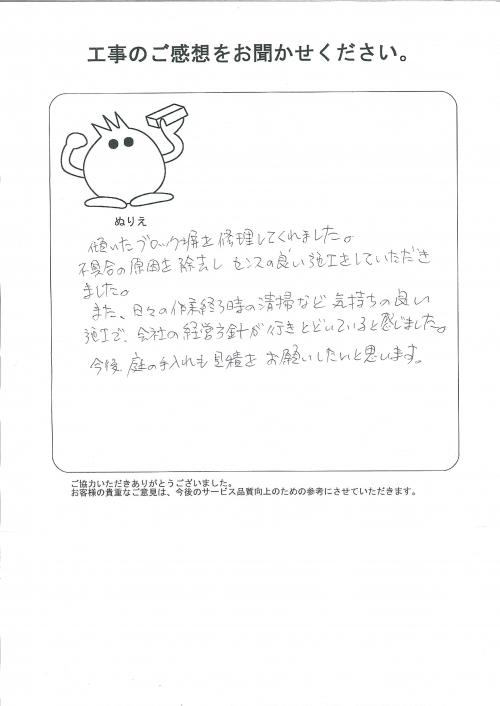 工事のご感想をお聞かせください。
ぬりえ
傾いたブロック塀を修理してくれました。
不具合の原因を除去し センスの良い施工をしていただき
ました。
また、日々の作業終了時の清掃など 気持ちの良い
施工で、会社の経営方針が行きとどいていると感じました。
今後 庭の手入れも見積を お願いしたいと思います。
ご協力いただきありがとうございました。
お客様の貴重なご意見は、今後のサービス品質向上のための参考にさせていただきます。